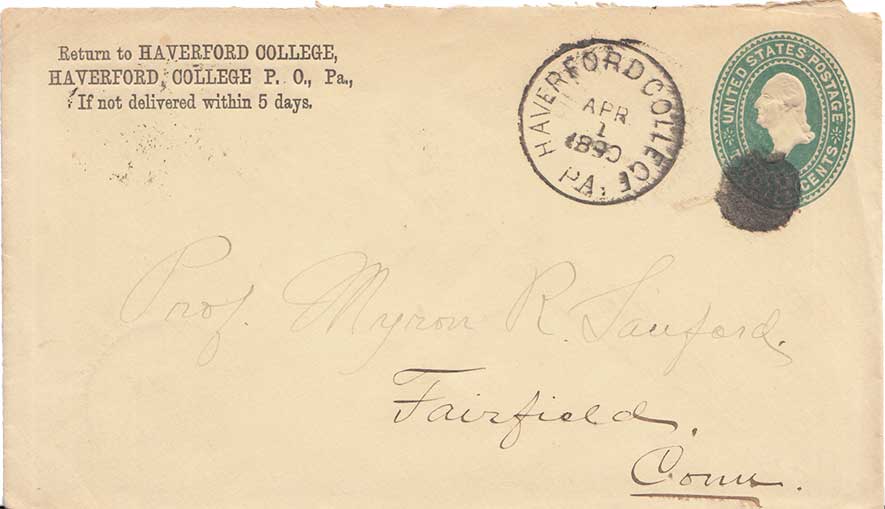 Return to HAVERFORD COLLEGE,
HAVERFORD, COLLEGE P. O., Pa.,
If not delivered within 5 days.
HAVERFORD COLLEGE
APR
1
1890
PA.
UNITED STATES POSTAGE
CENTS
Prof. Myron R. Sanford.
Fairfield.
Conn.